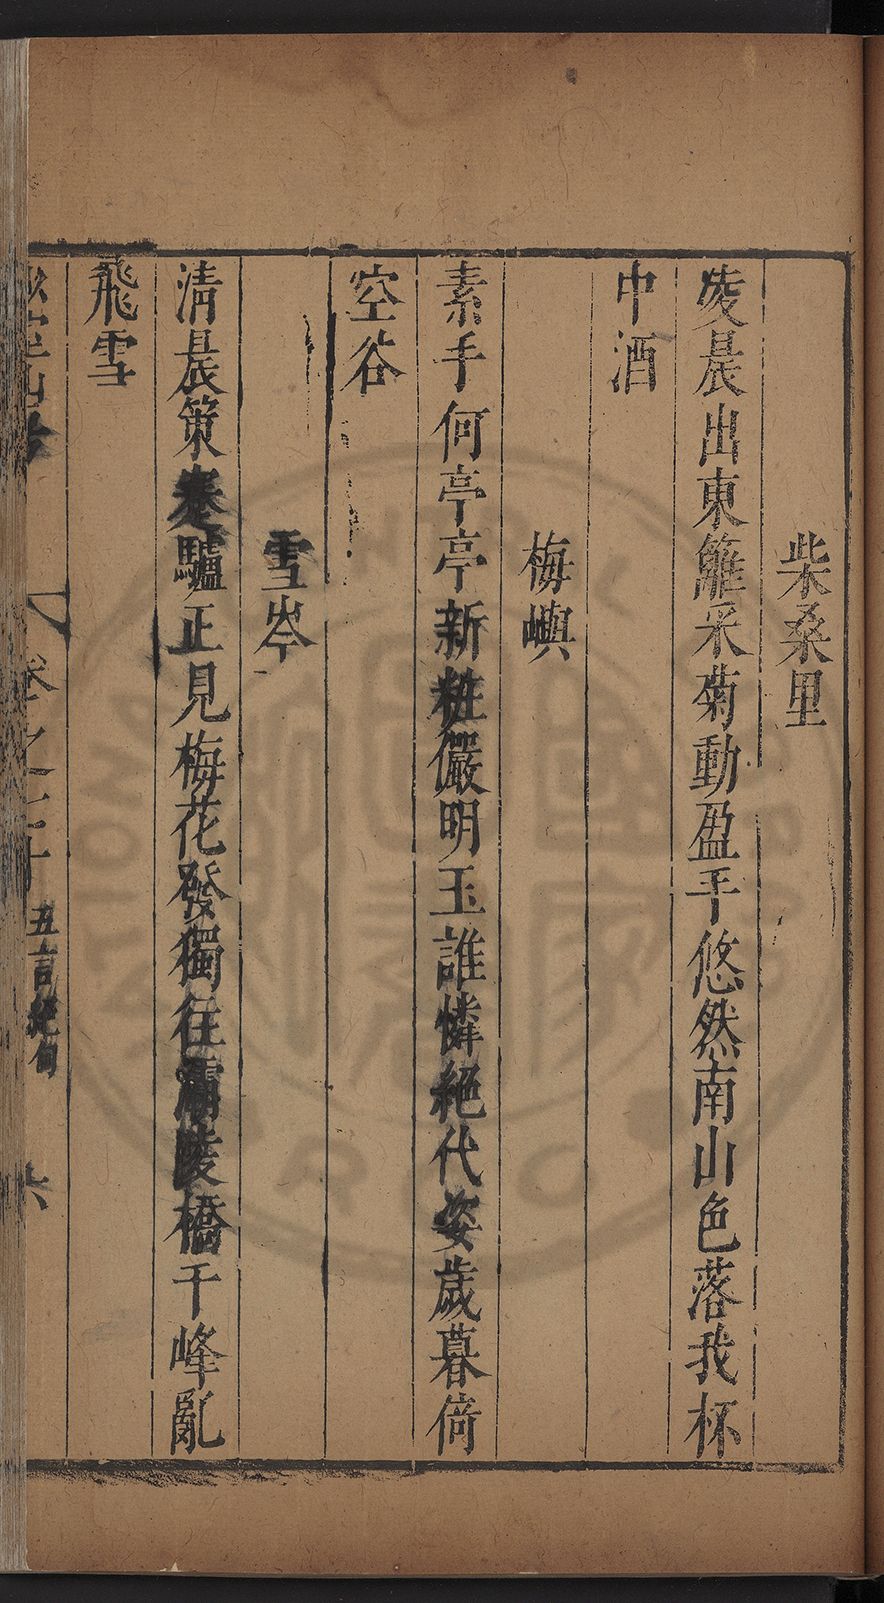 柴桑里
凌晨出東籬采菊動盈手悠然南山色落我杯
中酒
梅嶼
素手何亭亭新粧儼明玉誰憐絕代姿歲暮倚
空谷
雪岑
清晨策蹇驢正見梅花發獨往灞陵橋千峰亂
飛雪
卷之七十 五言絕句 六